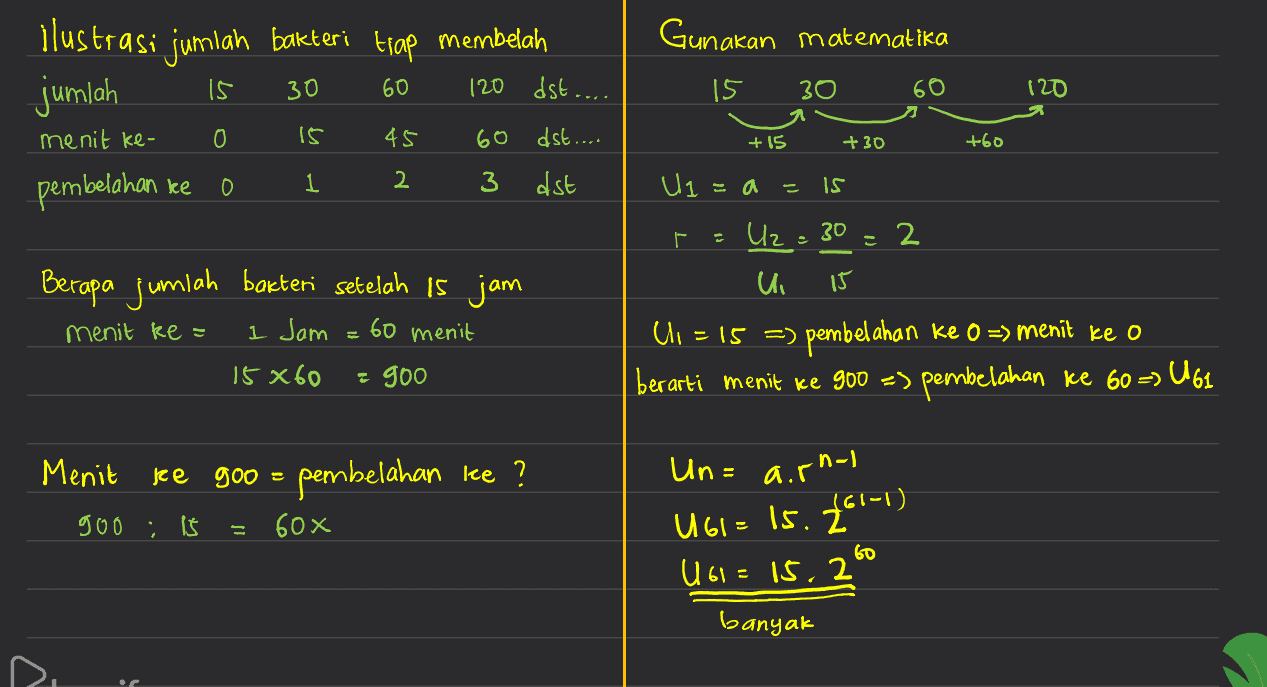 Ilustrasi jumlah bakteri tiap membelah
jumlah 15 30 60 120 dst....
menit ke- 0 15 45 60 dst....
pembelahan ke 0 1 2 3 dst
Berapa jumlah bakteri setelah 15 jam
menit ke = 1 Jam = 60 menit
15 x 60 = 900
Menit ke 900 = pembelahan ke ?
900 : 15 = 60x
Gunakan matematika
15 30 60 120
+15 +30 +60
U1 = a = 15
r = U2 = 30 = 2
U1 15
U1 = 15 => pembelahan ke 0 => menit ke 0
berarti menit ke 900 => pembelahan ke 60 => U61
Un = a.r^n-1
U61 = 15. 2^(61-1)
U61 = 15. 2^60
banyak